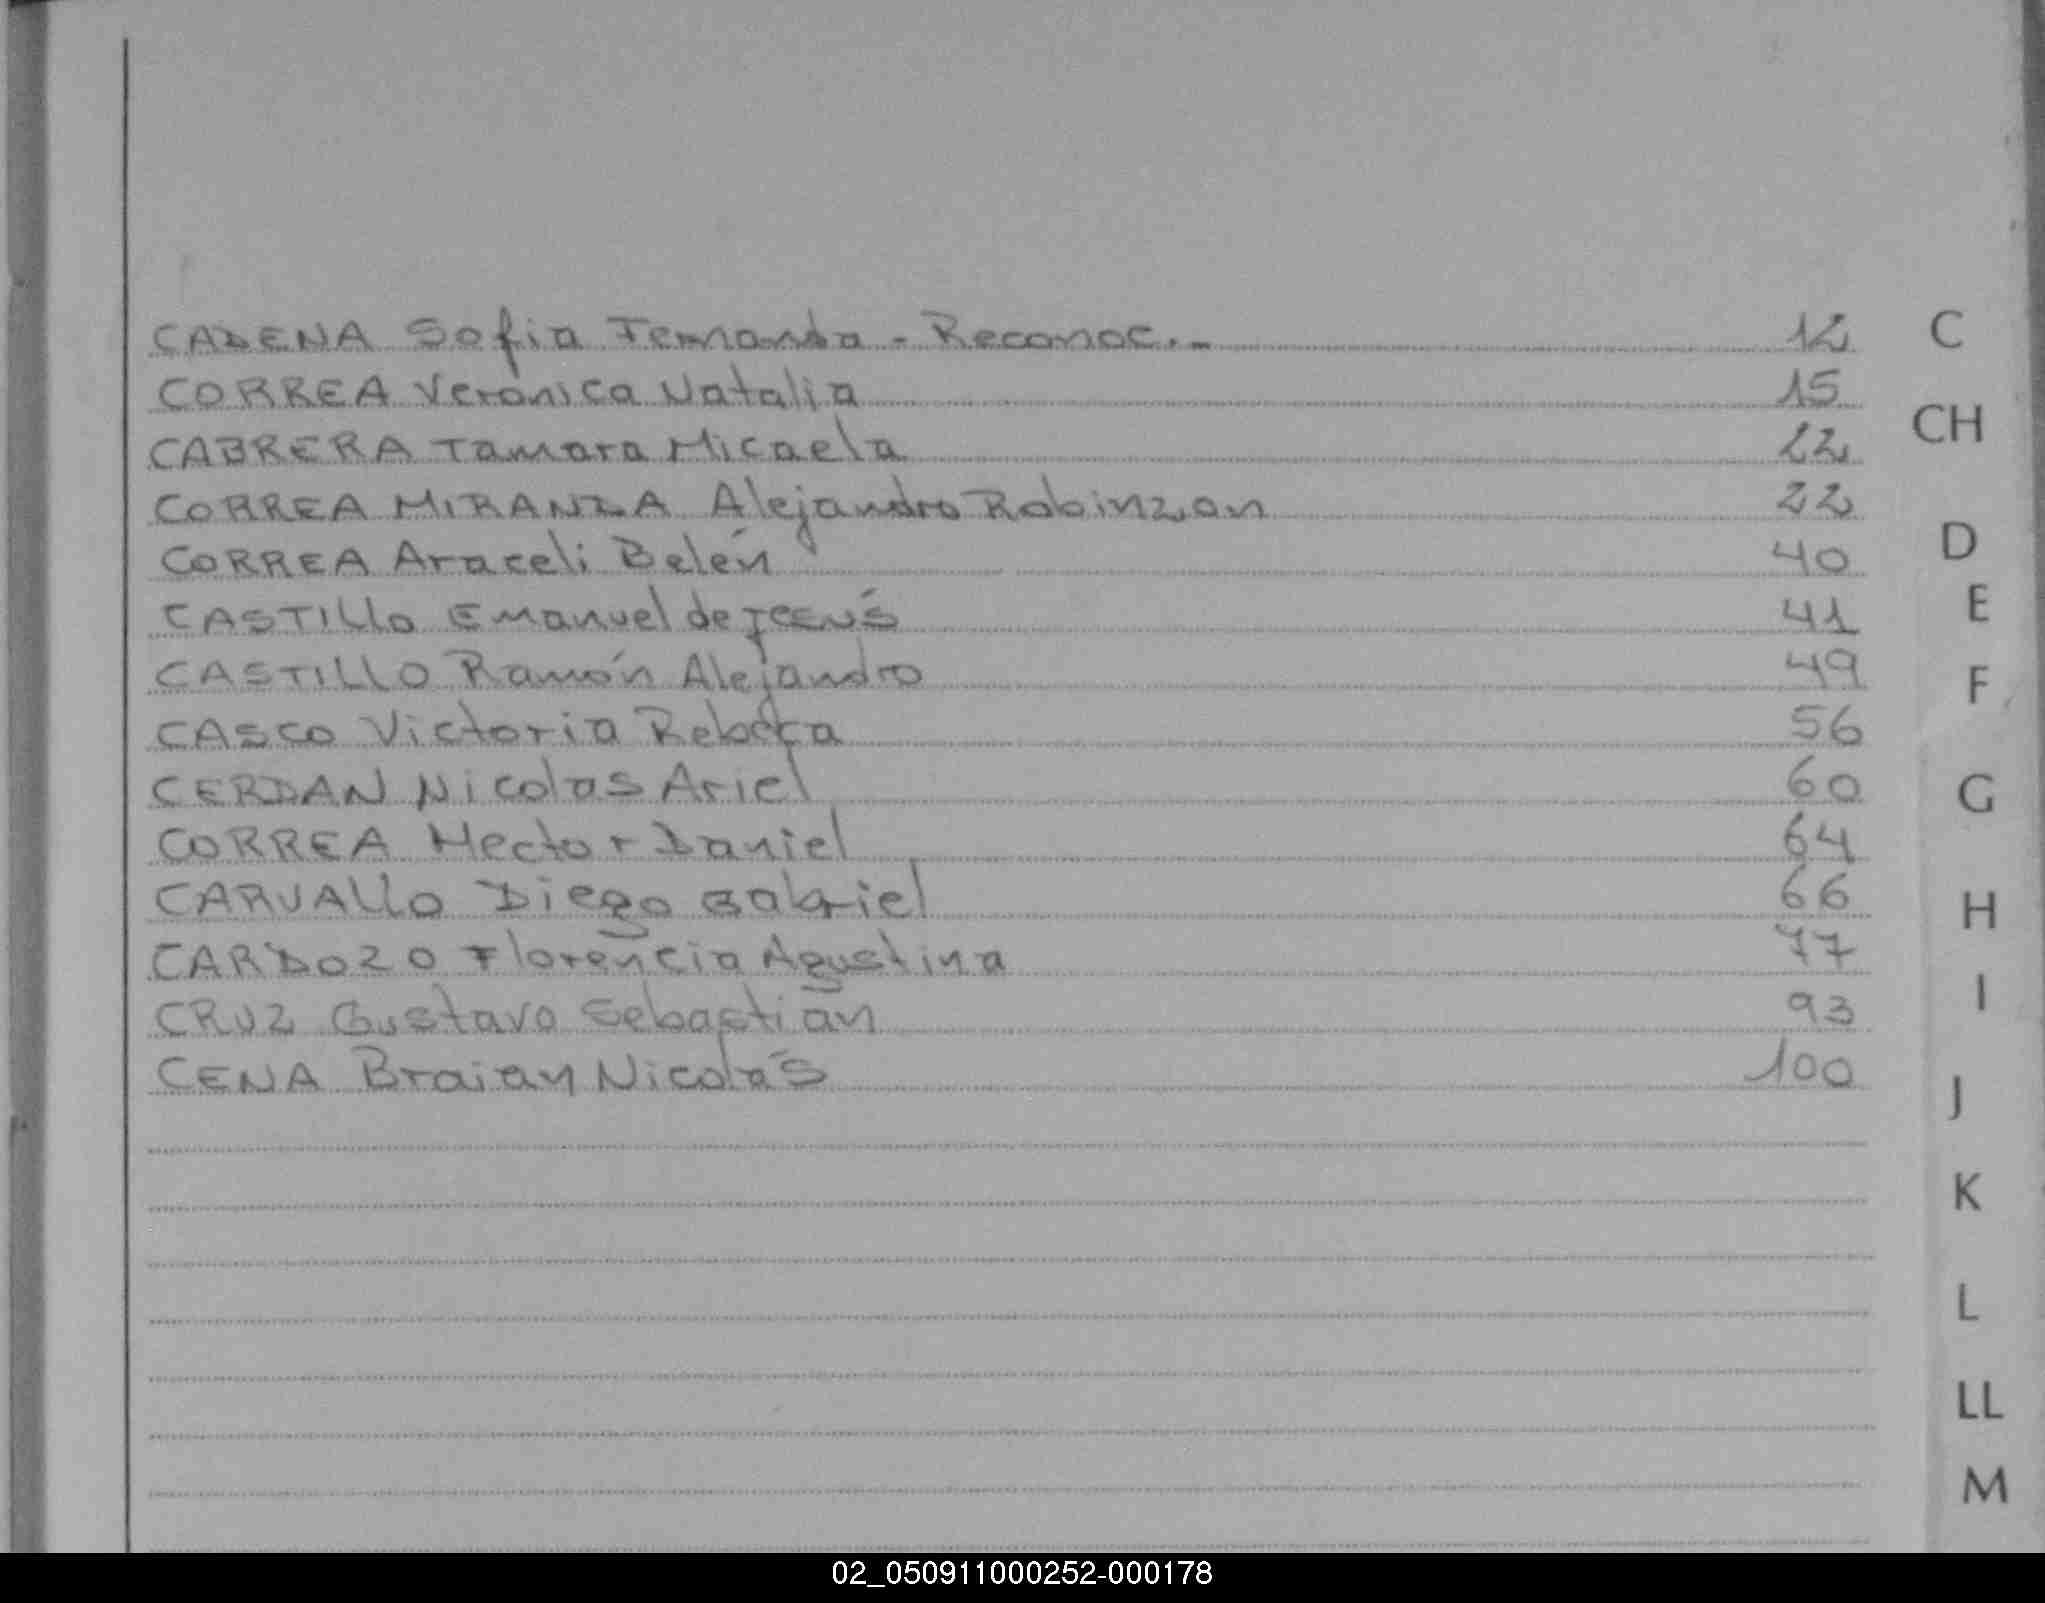 CADENA Sofia Fernanda - Reconoc.-	12	C
CORREA Veronica Natalia	15
CABRERA Tamara Micaela	22	CH
CORREA MIRANDA Alejandro Robinzon	22
CORREA Araceli Belén	40	D
CASTILLO Emanuel de	41	E
CASTILLO Ramón Alejandro	49	F
CASCO Victoria Rebeca	56
CERDAN Nicolas Ariel	60	G
CORREA Hector Daniel	64
CARVALLO Diego Gabriel	66	H
CARDOZO Florencia Agustina	77
CRUZ Gustavo Sebastián	93	I
CENA Braian Nicolás	100
J
K
L
LL
M
02_050911000252-000178